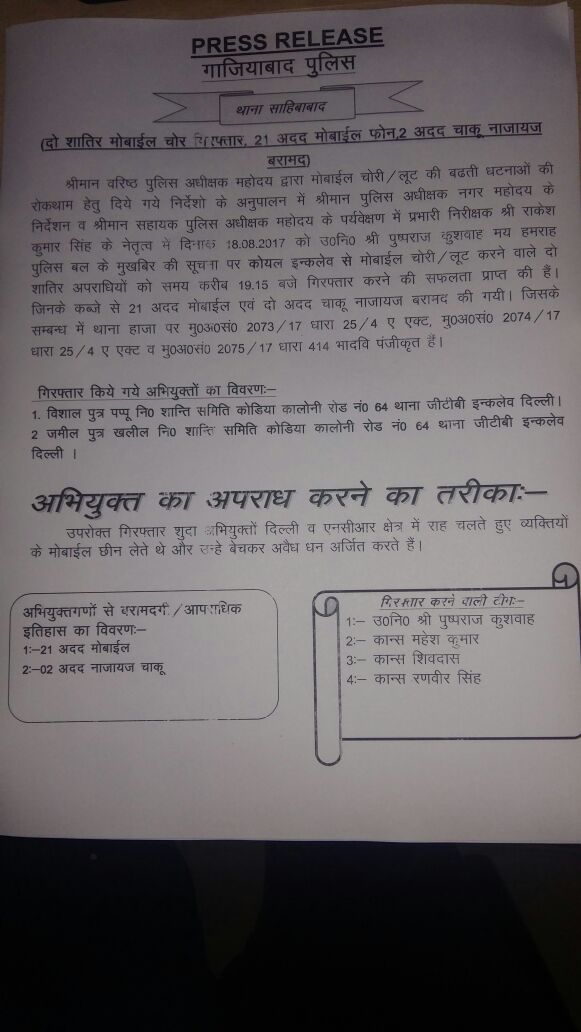 PRESS RELEASE
गाजियाबाद पुलिस
थाना साहिबाबाद
(दो शातिर मोबाईल चोर गिरफ्तार, 21 अदद मोबाईल फोन,2 अदद चाकू नाजायज
बरामद)
श्रीमान वरिष्ठ पुलिस अधीक्षक महोदय द्वारा मोबाईल चोरी/लूट की बढती धटनाओं की
रोकथाम हेतु दिये गये निर्देशो के अनुपालन में श्रीमान पुलिस अधीक्षक नगर महोदय के
निर्देशन व श्रीमान सहायक पुलिस अधीक्षक महोदय के पर्यवेक्षण में प्रभारी निरीक्षक श्री राकेश
कुमार सिंह के नेतृत्व में दिनाक 18.08.2017 को उ0नि0 श्री पुष्पराज कुशवाह मय हमराह
पुलिस बल के मुखबिर की सूचना पर कोयल इन्कलेव से मोबाईल चोरी/लूट करने वाले दो
शातिर अपराधियों को समय करीब 19.15 बजे गिरफ्तार करने की सफलता प्राप्त की हैं।
जिनके कब्जे से 21 अदद मोबाईल एवं दो अदद चाकू नाजायज बरामद की गयी। जिसके
सम्बन्ध में थाना हाजा पर मु0अ0सं0 2073/17 धारा 25/4 ए एक्ट, मु0अ0सं0 2074/17
धारा 25/4 ए एक्ट व मु0अ0सं0 2075/17 धारा 414 भादवि पंजीकृत हैं।
गिरफ्तार किये गये अभियुक्तों का विवरणः–
1. विशाल पुत्र पप्पू नि0 शान्ति समिति कोडिया कालोनी रोड नं0 64 थाना जीटीबी इन्कलेव दिल्ली।
2 जमील पुत्र खलील नि0 शान्ति समिति कोडिया कालोनी रोड नं0 64 थाना जीटीबी इन्कलेव
दिल्ली ।
अभियुक्त का अपराध करने का तरीकाः–
उपरोक्त गिरफ्तार शुदा अभियुक्तों दिल्ली व एनसीआर क्षेत्र में राह चलते हुए व्यक्तियों
के मोबाईल छीन लेते थे और उन्हे बेचकर अवैध धन अर्जित करते हैं।
अभियुक्तगणों से बरामदगी/आपराधिक
इतिहास का विवरणः–
1:–21 अदद मोबाईल
2:–02 अदद नाजायज चाकू
गिरफ्तार करने वाली टीमः–
1:– उ0नि0 श्री पुष्पराज कुशवाह
2:– कान्स महेश कुमार
3:– कान्स शिवदास
4:– कान्स रणवीर सिंह